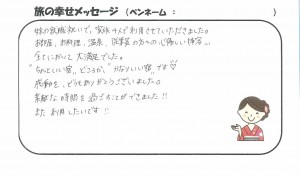 旅の幸せメッセージ（ペンネーム： ）
妹の就職祝いで、家族4人で利用させていただきました。
お部屋、お料理、温泉、従業員の方の心優しい接客…
全てにおいて大満足でした。
"ちょっといい宿"どころか、"かなりいい宿"です♡
感動を、どうもありがとうございました。
素敵な時間を過ごすことができました!!
また利用したいです!!